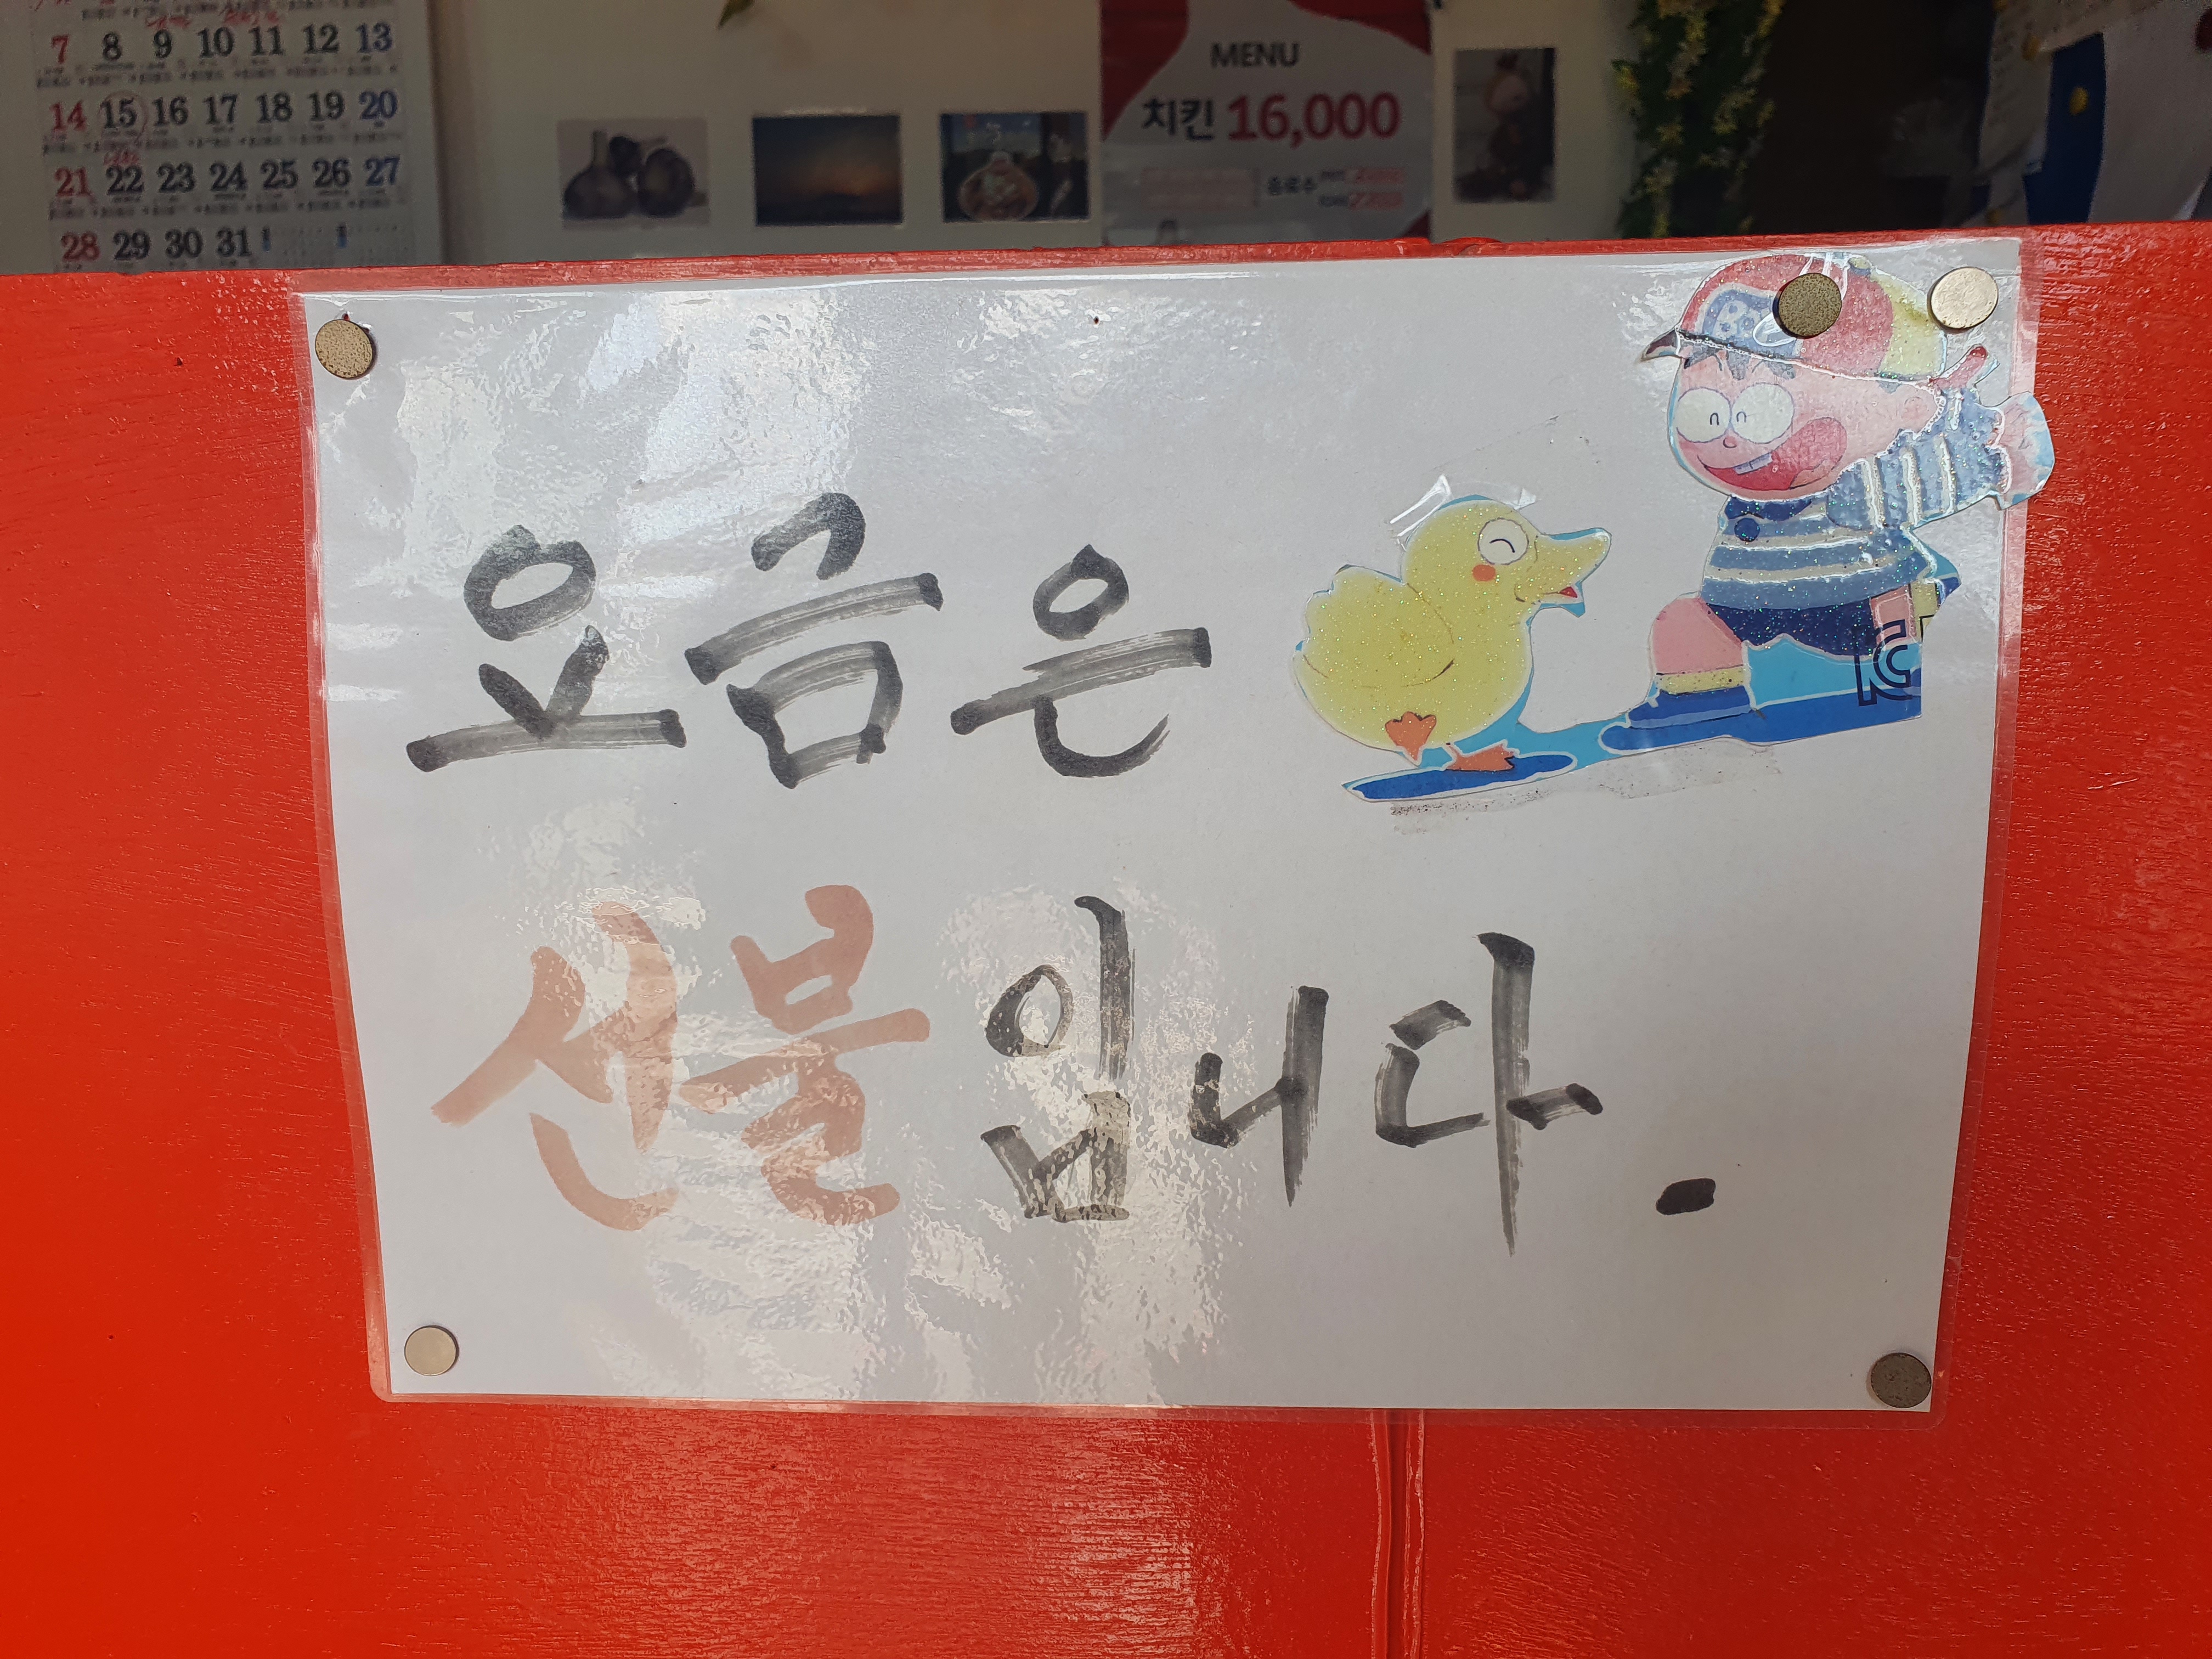 7 8 9 10 11 12 13
14 15 16 17 18 19 20
21 22 23 24 25 26 27
28 29 30 31
MENU
치킨 16,000
음료수
요금은
선불입니다.